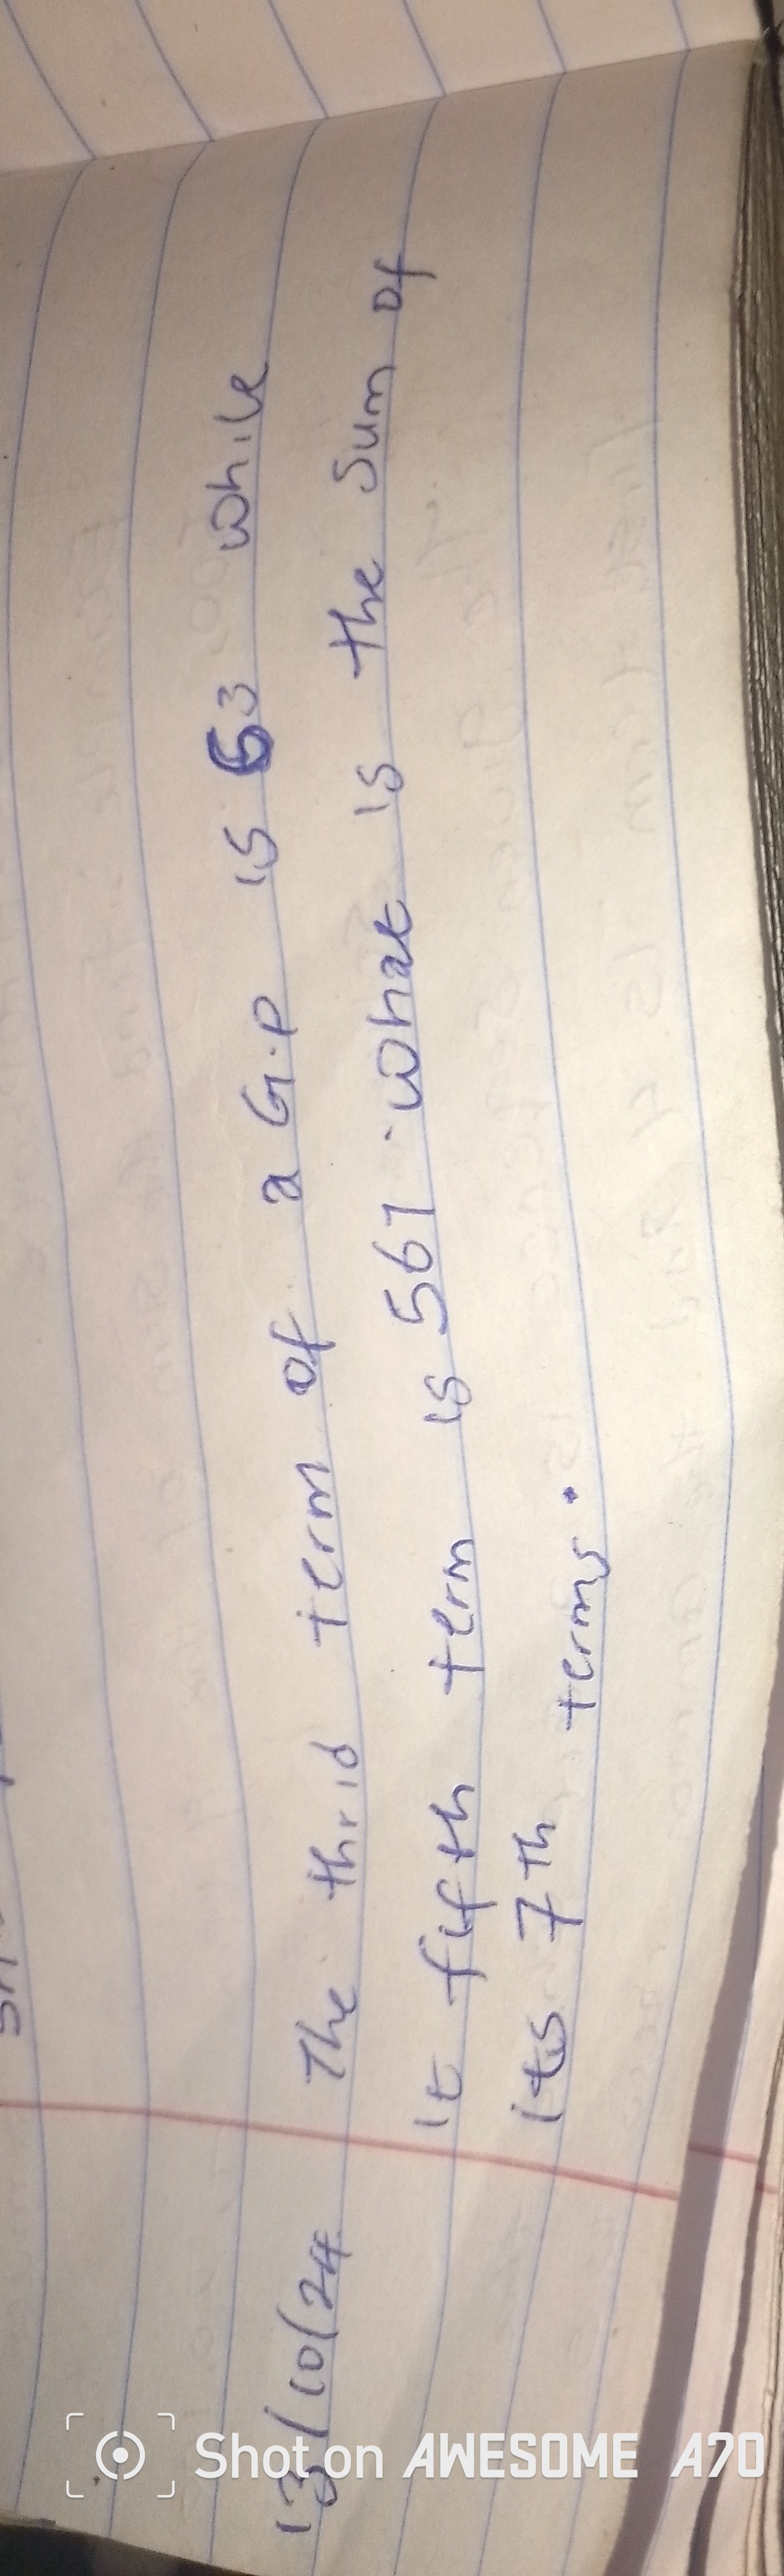 13/10/24 The thrid term of a G.P is 63 while
it fifth term is 567. what is the sum of
its 7th terms.
Shot on AWESOME A70